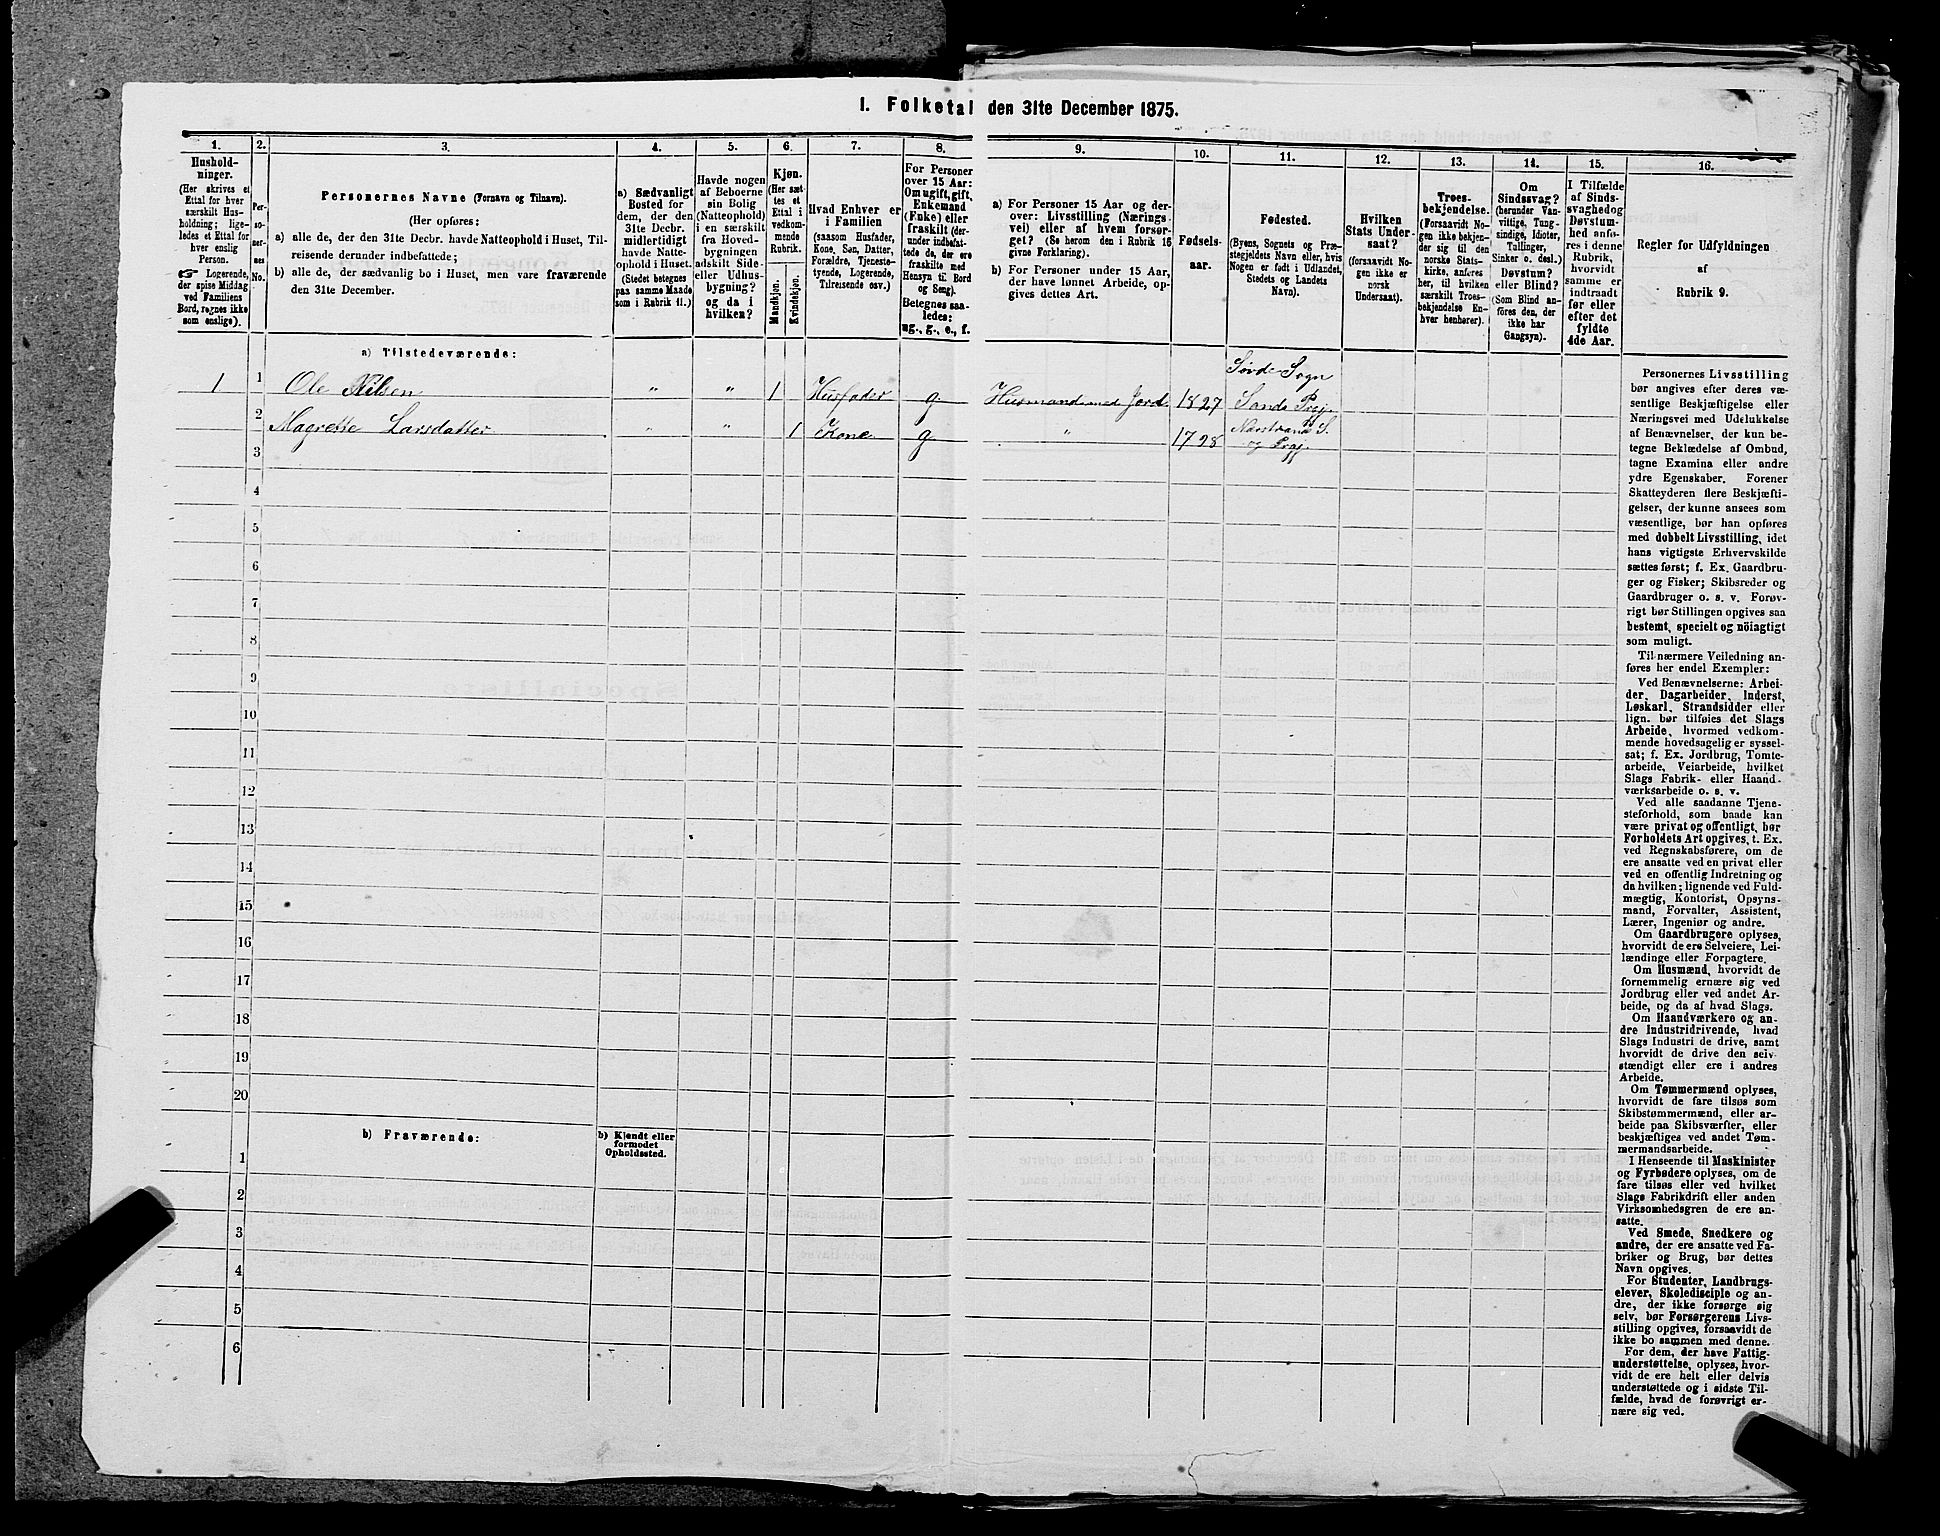 I. Folketal den 31te December 1875.
1. 2. 3. 4. 5. 6. 7. 8. 9. 10. 11. 12. 13. 14. 15. 16.
Hushold-
ninger.
(Her skrives et
Ettal for hver
særskilt Hus-
holdning; lige-
ledes et Ettal for
hver enslig
Person.
☞ Logerende,
der spise Middag
ved Familiens
Bord, regnes ikke
som enslige).
Per-
so-
ner-
nes
No.
Personernes Navne (Fornavn og Tilnavn).
(Her opføres:
a) alle de, der den 31te Decbr. havde Natteophold i Huset, Til-
reisende derunder indbefattede;
b) alle de, der sædvanlig bo i Huset, men vare fraværende
den 31te December.
a) Sædvanligt
Bosted for
dem, der den
31te Decbr.
midlertidigt
havde Natte-
ophold i Huset.
(Stedet betegnes
paa samme Maade
som i Rubrik 11.)
Havde nogen
af Beboerne
sin Bolig
(Natteophold)
i en særskilt
fra Hoved-
bygningen
adskilt Side-
eller Udhus-
bygning?
og da i
hvilken?
Kjøn.
(Her sæt-
tes et
Ettal i
vedkom-
mende
Rubrik.
Mandkjøn.
Kvindekjøn.
Hvad Enhver er
i Familien
(saasom Husfader,
Kone, Søn, Datter,
Forældre, Tjeneste-
tyende, Logerende,
Tilreisende osv.)
For Personer
over 15 Aar:
Om ugift, gift,
Enkemand
(Enke) eller
fraskilt (der-
under indbefat-
tede de, der ere
fraskilte med
Hensyn til Bord
og Seng).
Betegnes saa-
ledes:
ug., g., e., f.
a) For Personer 15 Aar og der-
over: Livsstilling (Nærings-
vei) eller af hvem forsør-
get? (Se herom den i Rubrik 16
givne Forklaring).
b) For Personer under 15 Aar,
der have lønnet Arbeide, op-
gives dettes Art.
Fødsels-
aar.
Fødested.
(Byens, Sognets og Præ-
stegjeldets Navn eller, hvis
Nogen er født i Udlandet,
Stedets og Landets
Navn).
Hvilken
Stats Under-
saat?
(forsaavidt No-
gen ikke er
norsk
Undersaat).
Troes-
bekjendelse.
(Forsaavidt No-
gen ikke bekjen-
der sig til den
norske Stats-
kirke, anføres
her, til hvilken
særskilt Troes-
bekjendelse En-
hver henhører).
Om
Sindssvag?
(herunder Van-
vittige, Tung-
sindige, Idioter,
Tullinger,
Sinker o. desl.)
Døvstum?
eller Blind?
(Som Blind an-
føres den, der
ikke har
Gangsyn).
I Tilfælde
af Sinds-
svaghed og
Døvstum-
hed anfø-
res i denne
Rubrik,
hvorvidt
samme er
indtraadt
før eller
efter det
fyldte
4de Aar.
Regler for Udfyldningen
af
Rubrik 9.
a) Tilstedeværende:
Søvde Sogn
1 1 Ole Nilsen " " 1 Husfader g. Husmand med Jord 1827 Sands Prgj.
2 Magrette Larsdatter " " 1 Kone g. " 1798 Nærstrands S.
og Prgj.
3
4
5
6
7
8
9
10
11
12
13
14
15
16
17
18
19
20
b) Fraværende:
b) Kjendt eller
formodet
Opholdssted.
1
2
3
4
5
6
Personernes Livsstilling
bør angives efter deres væ-
sentlige Beskjæftigelse eller
Næringsvei med Udelukkelse
af Benævnelser, der kun be-
tegne Beklædelse af Ombud,
tagne Examina eller andre
ydre Egenskaber. Forener
Skatteyderen flere Beskjæfti-
gelser, der kunne ansees som
væsentlige, bør han opføres
med dobbelt Livsstilling, idet
hans vigtigste Erhvervskilde
sættes først; f. Ex. Gaardbru-
ger og Fisker; Skibsreder og
Gaardbruger o. s. v. Forøv-
rigt bør Stillingen opgives saa
bestemt, specielt og nöiagtigt
som muligt.
Til nærmere Veiledning an-
føres her endel Exempler:
Ved Benævnelserne: Arbei-
der, Dagarbeider, Inderst,
Løskarl, Strandsidder eller
lign. bør tilføies det Slags
Arbeide, hvormed vedkom-
mende hovedsagelig er syssel-
sat; f. Ex. Jordbrug, Tomte-
arbeide, Veiarbeide, hvilket
Slags Fabrik- eller Haand-
værksarbeide o. s. v.
Ved alle saadanne Tjene-
steforhold, som baade kan
være privat og offentligt, bør
Forholdets Art opgives, t. Ex.
ved Regnskabsførere, om de
ere ansatte ved en privat eller
ved en offentlig Indretning og
da hvilken; lignende ved Fuld-
mægtig, Kontorist, Opsyns-
mand, Forvalter, Assistent,
Lærer, Ingeniør og andre.
Om Gaardbrugere oplyses,
hvorvidt de ere Selveiere, Lei-
lændinge eller Forpagtere.
Om Husmænd, hvorvidt de
fornemmelig ernære sig ved
Jordbrug eller ved andet Ar-
beide, og da af hvad Slags.
Om Haandværkere og an-
dre Industridrivende, hvad
Slags Industri de drive, samt
hvorvidt de drive den selv-
stændigt eller ere i andres
Arbeide.
Om Tømmermænd oplyses,
hvorvidt de fare tilsøs som
Skibstømmermænd, eller ar-
beide paa Skibsværfter, eller
beskjæftiges ved andet Tøm-
mermandsarbeide.
I Henseende til Maskinister
og Fyrbødere oplyses, om de
fare tilsøs eller ved hvilket
Slags Fabrikdrift eller anden
Virksomhedsgren de ere an-
satte.
Ved Smede, Snedkere og
andre, der ere ansatte ved Fa-
briker og Brug, bør dettes
Navn opgives.
For Studenter, Landbrugs-
elever, Skoledisciple og an-
dre, der ikke forsørge sig
selv, bør Forsørgerens Livs-
stilling opgives, forsaavidt de
ikke bo sammen med denne.
For dem, der have Fattig-
understøttelse, oplyses, hvor-
vidt de ere helt eller delvis
understøttede og i sidste Til-
fælde, hvad de forøvrigt er-
nære sig ved.